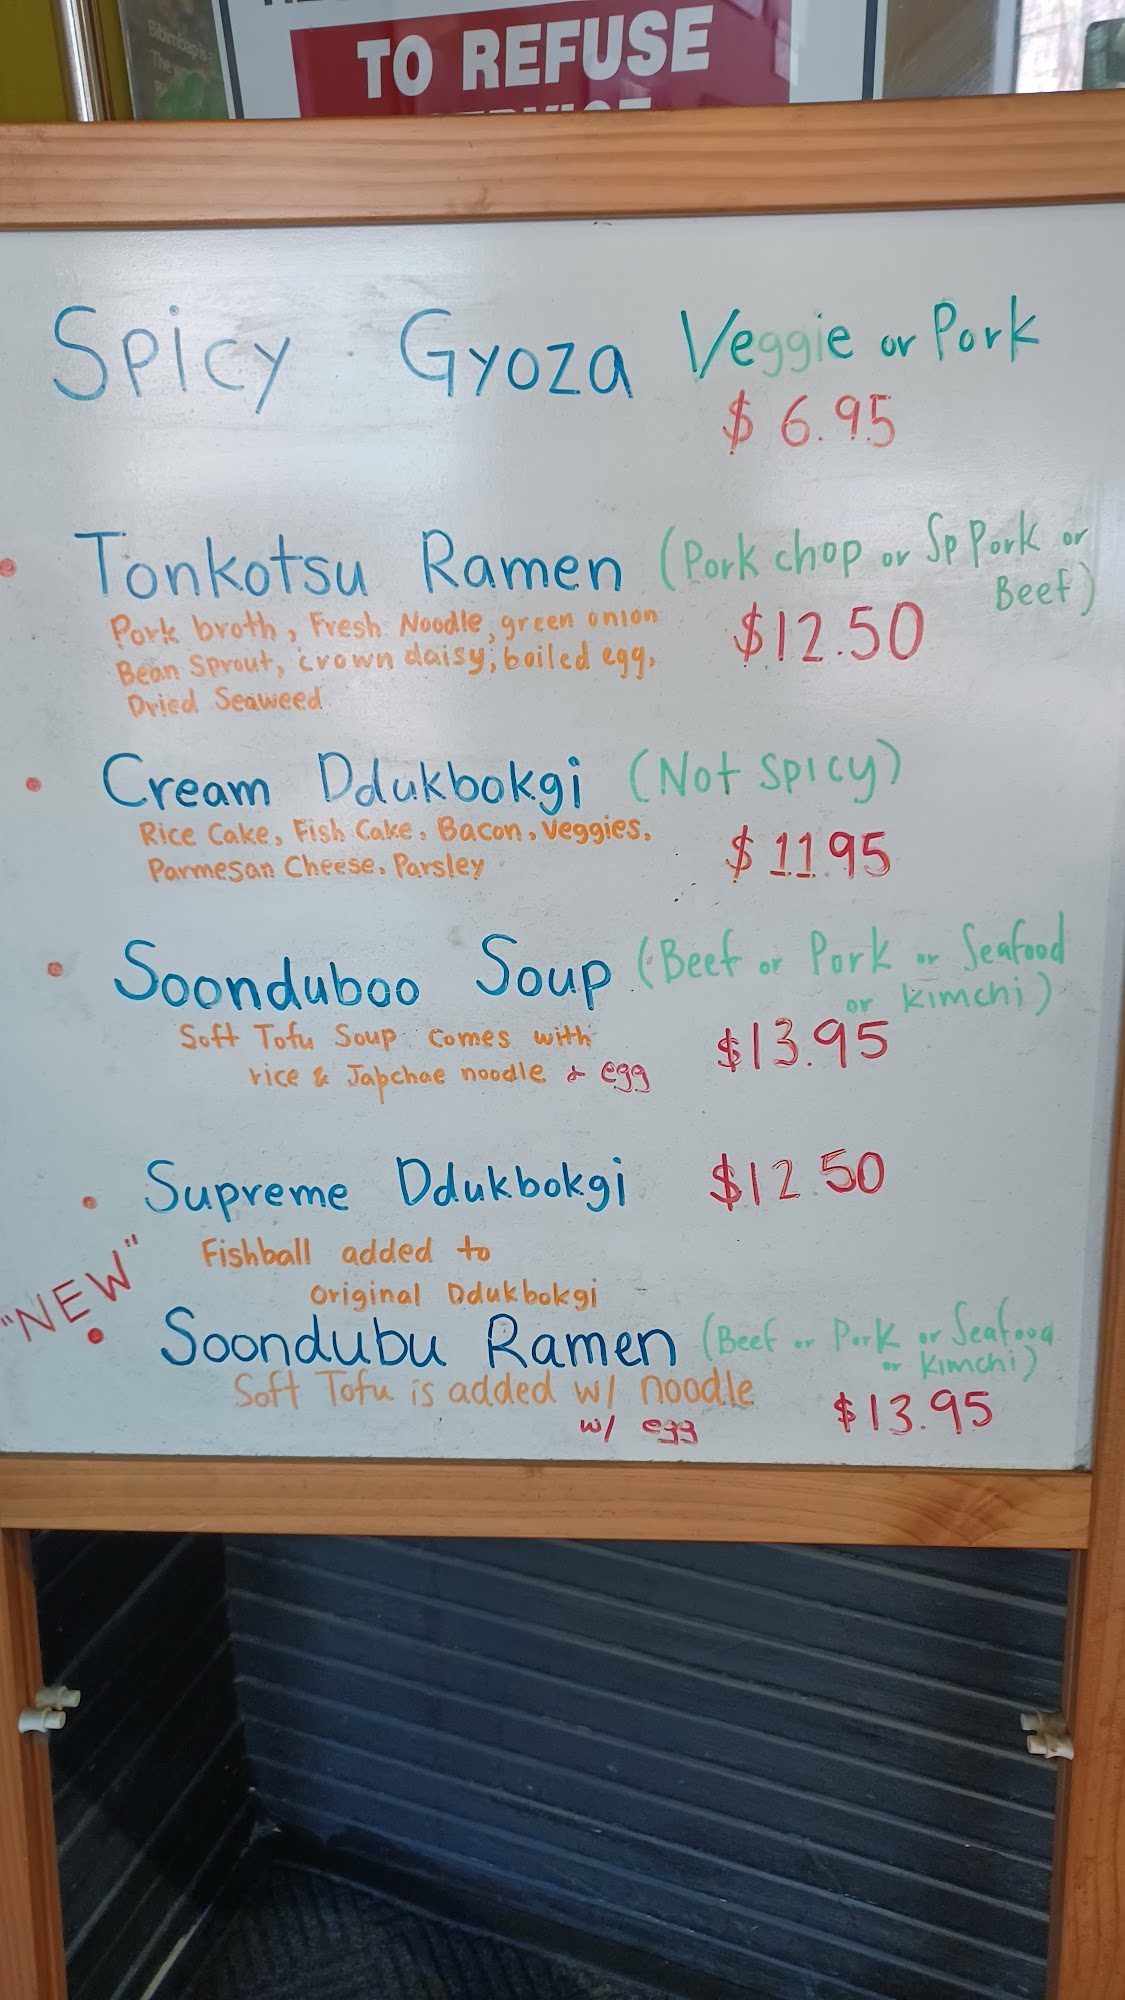 TO REFUSE
Spicy Gyoza Veggie or Pork
$ 6.95
Tonkotsu Ramen (Pork chop or Sp Pork or
Beef)
$12.50
Pork broth, Fresh Noodle, green onion
Bean Sprout, crown daisy, boiled egg,
Dried Seaweed
Cream Ddukbokgi (Not Spicy)
Rice Cake, Fish Cake, Bacon, Veggies,
Parmesan Cheese, Parsley
$ 11.95
Soonduboo Soup (Beef or Pork or Seafood
or Kimchi)
Soft Tofu Soup comes with
$13.95
rice & Japchae noodle & egg
Supreme Ddukbokgi $12.50
Fishball added to
original Ddukbokgi
"NEW"
Soondubu Ramen (Beef or Pork or Seafood
or Kimchi)
Soft Tofu is added w/ noodle
w/ egg
$13.95